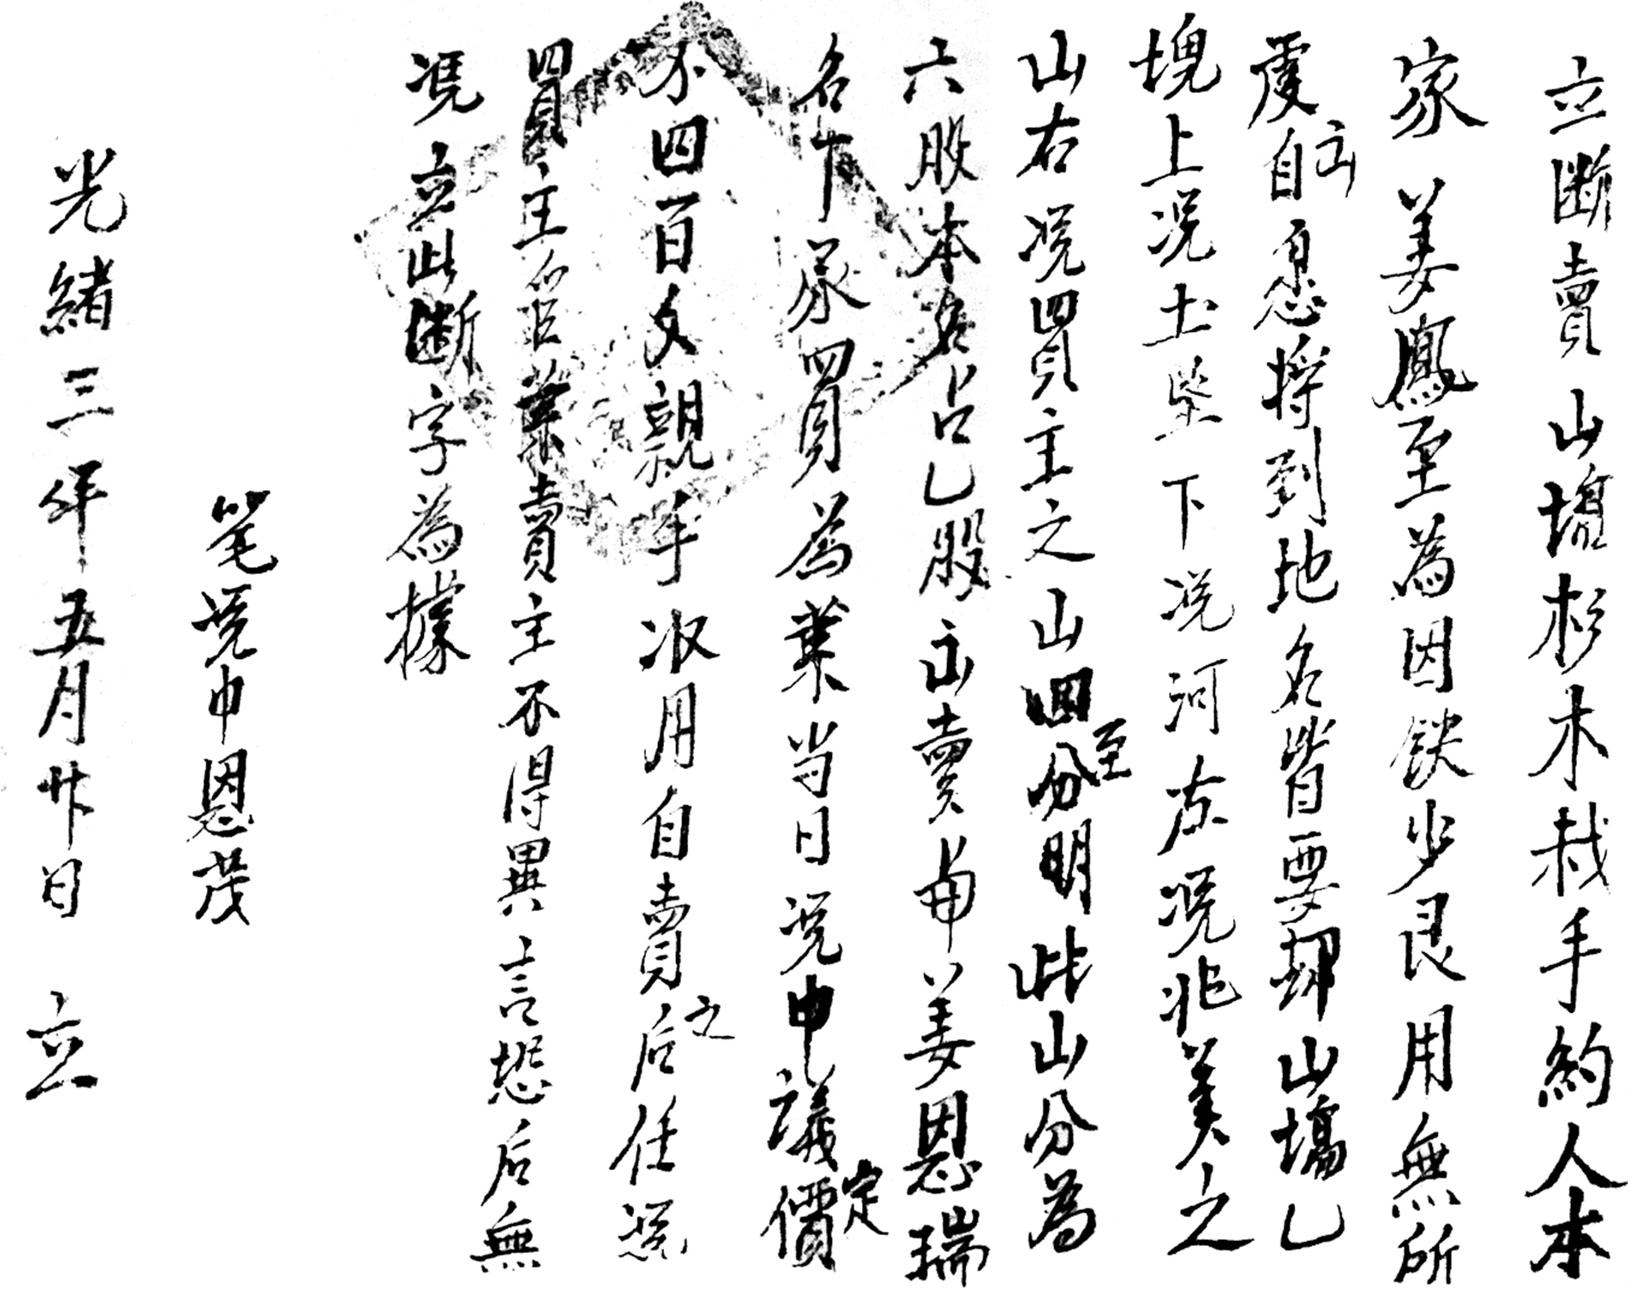 立斷賣山塲杉木栽手約人本
家姜鳳至為因缺少艮用無所
處出自愿將到地名皆要山塲乙
塊上凴土坐下凴河左凴兆美之
山右凴買主之山四至分明此山分為
六股本名占乙股出賣與姜恩瑞
名下承買為業当日凴中議定價
不四百文親手收用自賣之后任凴
買主管業賣主不得異言恐后無
凴立此斷字為據
筆凴中恩茂
光緒三年五月廿日 立